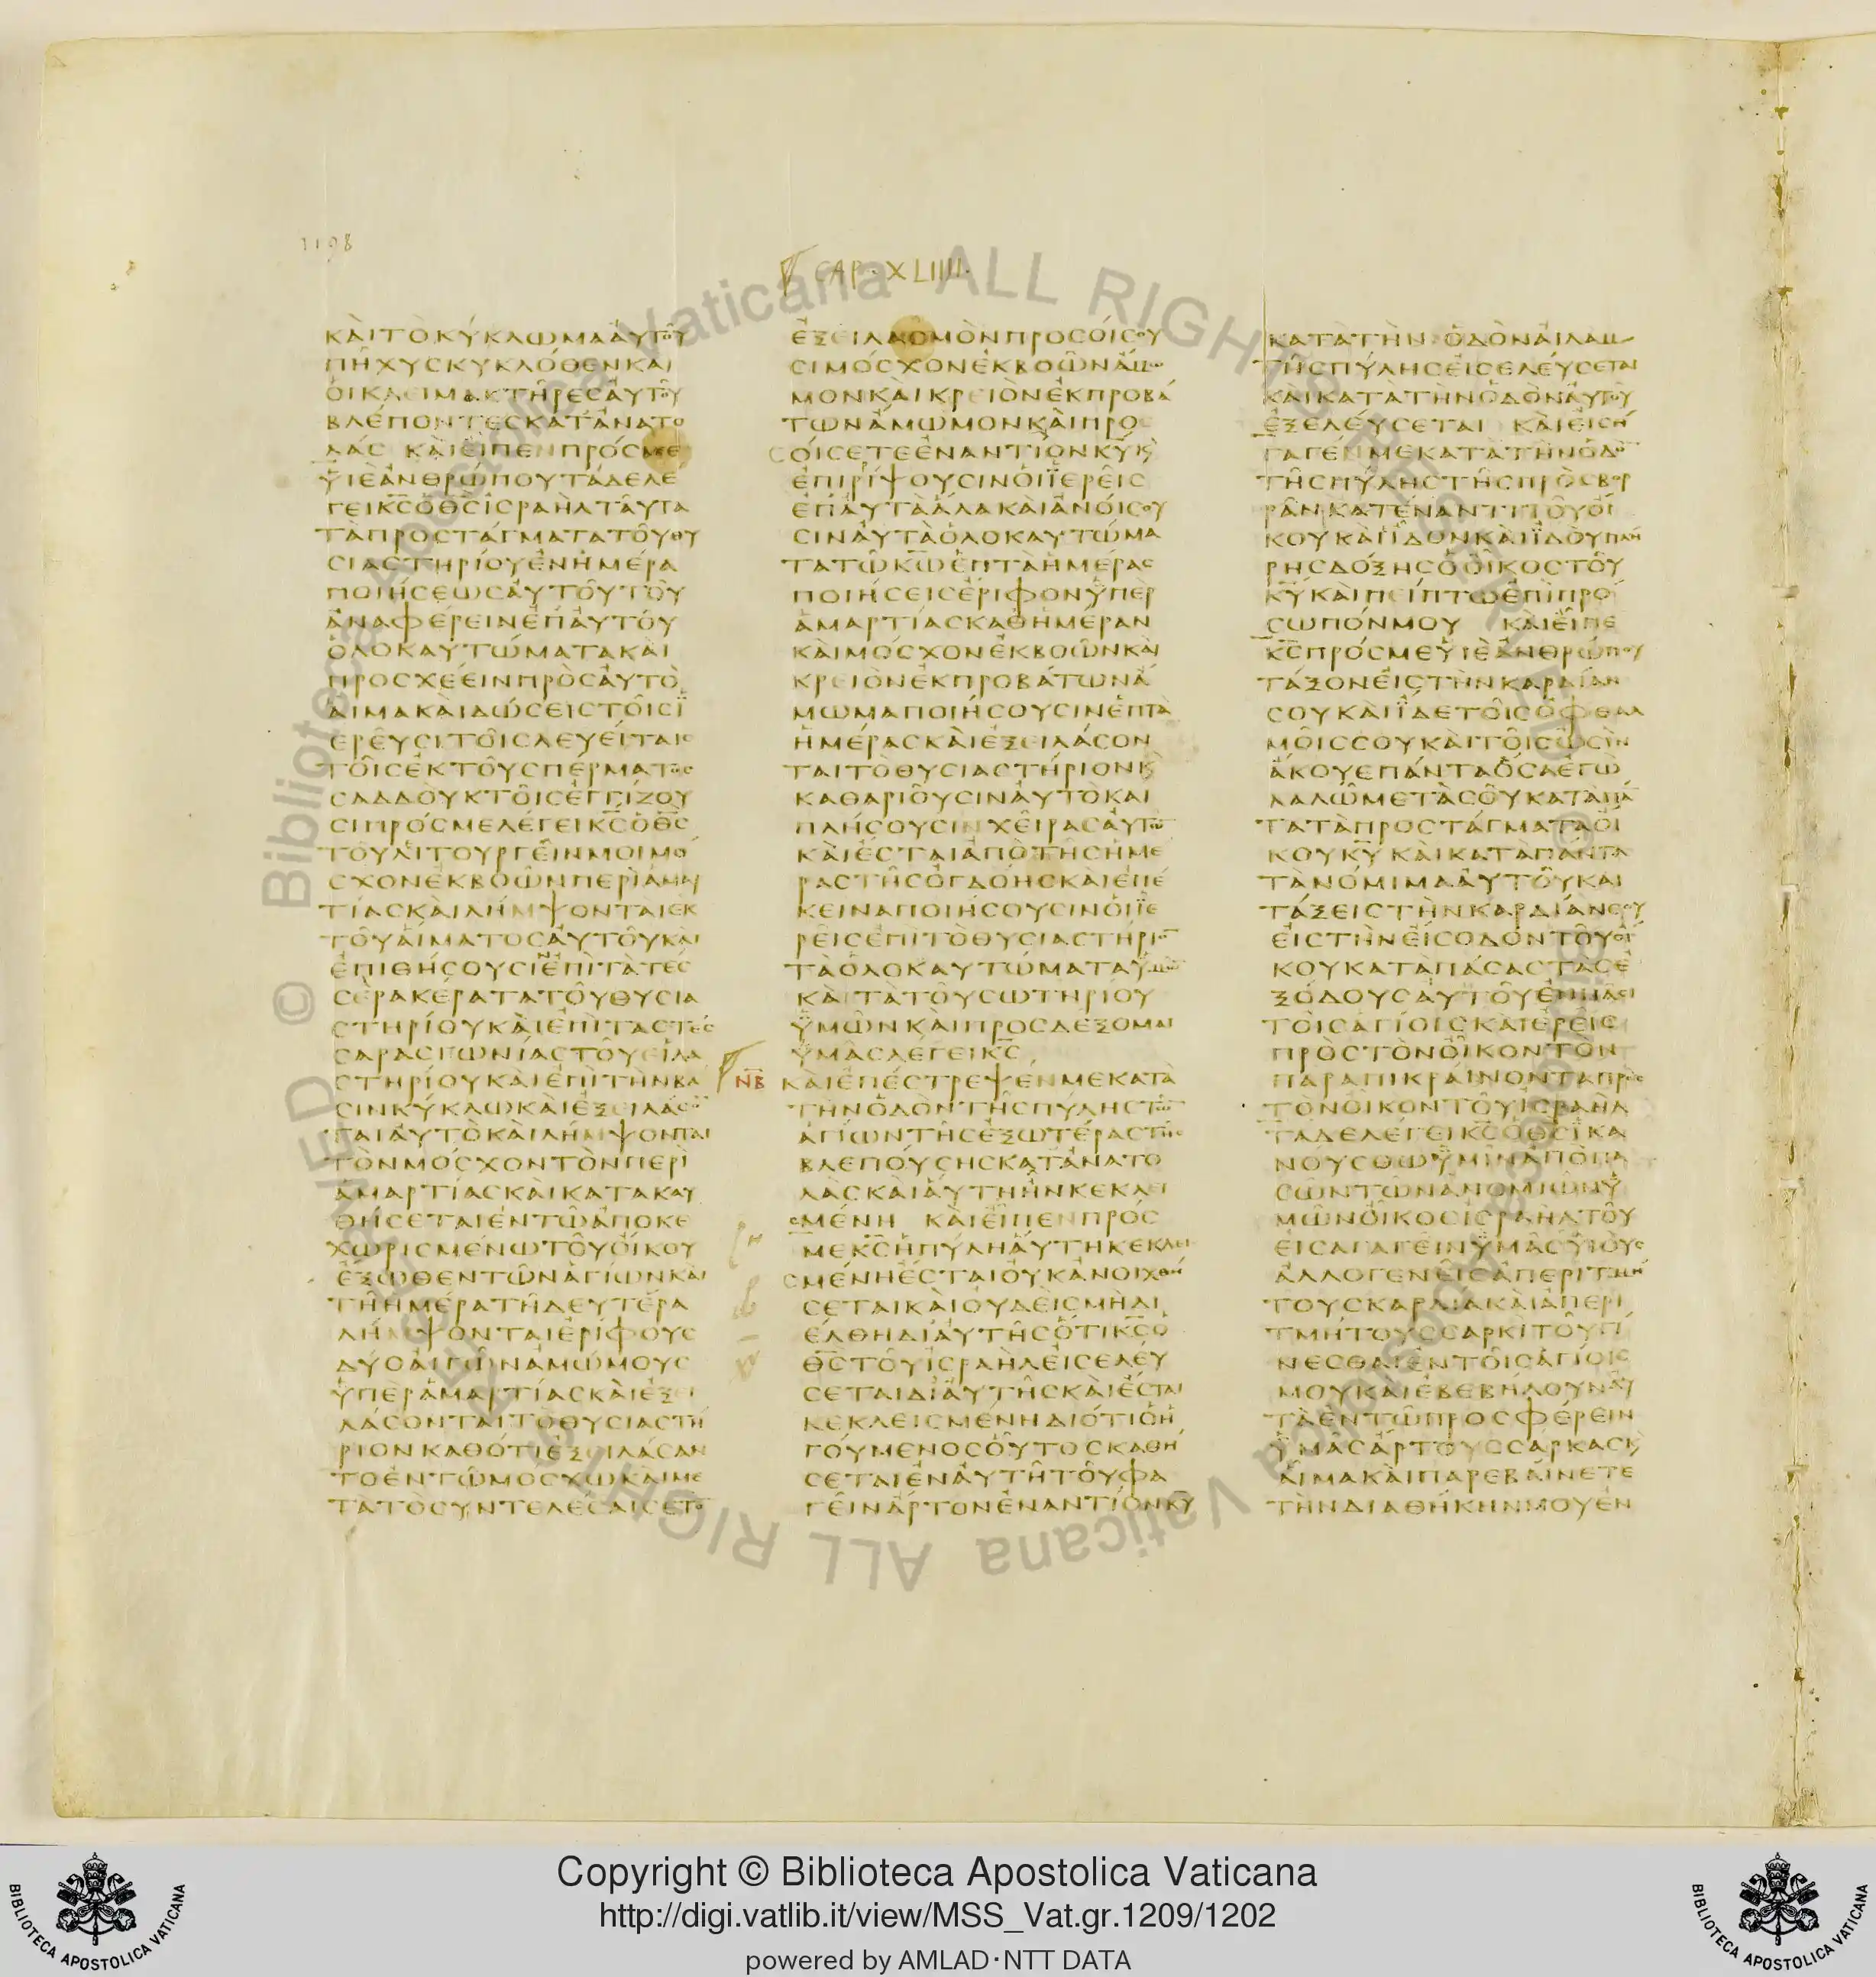 1198
CAP·XLIIII·
ΚΑΙΤΟΚΥΚΛΩΜΑΑΥΤΟΥ
ΠΗΧΥΣΚΥΚΛΟΘΕΝΚΑΙ
ΟΙΚΛΕΙΜΑΚΤΗΡΕΣΑΥΤΟΥ
ΒΛΕΠΟΝΤΕΣΚΑΤΑΝΑΤΟ
ΛΑΣ ΚΑΙΕΙΠΕΝΠΡΟΣΜΕ
ΥΙΕΑΝΘΡΩΠΟΥΤΑΔΕΛΕ
ΓΕΙΚ̅Σ̅ΟΘ̅Σ̅ΙΣΡΑΗΛΤΑΥΤΑ
ΤΑΠΡΟΣΤΑΓΜΑΤΑΤΟΥΘΥ
ΣΙΑΣΤΗΡΙΟΥΕΝΗΜΕΡΑ
ΠΟΙΗΣΕΩΣΑΥΤΟΥΤΟΥ
ΑΝΑΦΕΡΕΙΝΕΠΑΥΤΟΥ
ΟΛΟΚΑΥΤΩΜΑΤΑΚΑΙ
ΠΡΟΣΧΕΕΙΝΠΡΟΣΑΥΤΟ
ΑΙΜΑΚΑΙΔΩΣΕΙΣΤΟΙΣΪ
ΕΡΕΥΣΙΤΟΙΣΛΕΥΕΙΤΑΙΣ
ΤΟΙΣΕΚΤΟΥΣΠΕΡΜΑΤΟΣ
ΣΑΔΔΟΥΚΤΟΙΣΕΓΓΙΖΟΥ
ΣΙΠΡΟΣΜΕΛΕΓΕΙΚ̅Σ̅ΟΘ̅Σ̅
ΤΟΥΛΙΤΟΥΡΓΕΙΝΜΟΙΜΟ
ΣΧΟΝΕΚΒΟΩΝΠΕΡΙΑΜΑΡ
ΤΙΑΣΚΑΙΛΗΜΨΟΝΤΑΙΕΚ
ΤΟΥΑΙΜΑΤΟΣΑΥΤΟΥΚΑΙ
ΕΠΙΘΗΣΟΥΣΙΝΕΠΙΤΑΤΕΣ
ΣΕΡΑΚΕΡΑΤΑΤΟΥΘΥΣΙΑ
ΣΤΗΡΙΟΥΚΑΙΕΠΙΤΑΣΤΕΣ
ΣΑΡΑΣΓΩΝΙΑΣΤΟΥΕΙΛΑ
ΣΤΗΡΙΟΥΚΑΙΕΠΙΤΗΝΒΑ
ΣΙΝΚΥΚΛΩΚΑΙΕΞΕΙΛΑΣΟ̅
ΤΑΙΑΥΤΟΚΑΙΛΗΜΨΟΝΤΑΙ
ΤΟΝΜΟΣΧΟΝΤΟΝΠΕΡΙ
ΑΜΑΡΤΙΑΣΚΑΙΚΑΤΑΚΑΥ
ΘΗΣΕΤΑΙΕΝΤΩΑΠΟΚΕ
ΧΩΡΙΣΜΕΝΩΤΟΥΟΙΚΟΥ
ΕΞΩΘΕΝΤΩΝΑΓΙΩΝΚΑΙ
ΤΗΗΜΕΡΑΤΗΔΕΥΤΕΡΑ
ΛΗΜΨΟΝΤΑΙΕΡΙΦΟΥΣ
ΔΥΟΑΙΓΩΝΑΜΩΜΟΥΣ
ΥΠΕΡΑΜΑΡΤΙΑΣΚΑΙΕΞΕΙ
ΛΑΣΟΝΤΑΙΤΟΘΥΣΙΑΣΤΗ
ΡΙΟΝΚΑΘΟΤΙΕΞΕΙΛΑΣΑΝ
ΤΟΕΝΤΩΜΟΣΧΩΚΑΙΜΕ
ΤΑΤΟΣΥΝΤΕΛΕΣΑΙΣΕΤΟ̅
ΕΞΕΙΛΑΣΜΟΝΠΡΟΣΟΙΣΟΥ
ΣΙΜΟΣΧΟΝΕΚΒΟΩΝΑΜΩ
ΜΟΝΚΑΙΚΡΕΙΟΝΕΚΠΡΟΒΑ
ΤΩΝΑΜΩΜΟΝΚΑΙΠΡΟΣ
ΟΙΣΕΤΕΕΝΑΝΤΙΟΝΚ̅Υ̅Κ̀
ΕΠΙΡΙΨΟΥΣΙΝΟΙΪΕΡΕΙΣ
ΕΠΑΥΤΑΑΛΑΚΑΙΑΝΟΙΣΟΥ
ΣΙΝΑΥΤΑΟΛΟΚΑΥΤΩΜΑ
ΤΑΤΩΚ̅Ω̅ΕΠΤΑΗΜΕΡΑΣ
ΠΟΙΗΣΕΙΣΕΡΙΦΟΝΫΠΕΡ
ΑΜΑΡΤΙΑΣΚΑΘΗΜΕΡΑΝ
ΚΑΙΜΟΣΧΟΝΕΚΒΟΩΝΚΑΙ
ΚΡΕΙΟΝΕΚΠΡΟΒΑΤΩΝΑ
ΜΩΜΑΠΟΙΗΣΟΥΣΙΝΕΠΤΑ
ΗΜΕΡΑΣΚΑΙΕΞΕΙΛΑΣΟΝ
ΤΑΙΤΟΘΥΣΙΑΣΤΗΡΙΟΝΚ̀
ΚΑΘΑΡΙΟΥΣΙΝΑΥΤΟΚΑΙ
ΠΛΗΣΟΥΣΙΝΧΕΙΡΑΣΑΥΤΩ̅
ΚΑΙΕΣΤΑΙΑΠΟΤΗΣΗΜΕ
ΡΑΣΤΗΣΟΓΔΟΗΣΚΑΙΕΠΕ
ΚΕΙΝΑΠΟΙΗΣΟΥΣΙΝΟΙΪΕ
ΡΕΙΣΕΠΙΤΟΘΥΣΙΑΣΤΗΡΙΟ̅
ΤΑΟΛΟΚΑΥΤΩΜΑΤΑΥΜΩ̅
ΚΑΙΤΑΤΟΥΣΩΤΗΡΙΟΥ
ΫΜΩΝΚΑΙΠΡΟΣΔΕΞΟΜΑΙ
ΫΜΑΣΛΕΓΕΙΚ̅Σ̅
Ν̅Β̅ ΚΑΙΕΠΕΣΤΡΕΨΕΝΜΕΚΑΤΑ
ΤΗΝΟΔΟΝΤΗΣΠΥΛΗΣΤΩ̅
ΑΓΙΩΝΤΗΣΕΞΩΤΕΡΑΣΤΗΣ
ΒΛΕΠΟΥΣΗΣΚΑΤΑΝΑΤΟ
ΛΑΣΚΑΙΑΥΤΗΗΝΚΕΚΛΕΙ
ΣΜΕΝΗ ΚΑΙΕΙΠΕΝΠΡΟΣ
ΜΕΚ̅Σ̅ΗΠΥΛΗΑΥΤΗΚΕΚΛΕΙ
ΣΜΕΝΗΕΣΤΑΙΟΥΚΑΝΟΙΧΘΗ
ΣΕΤΑΙΚΑΙΟΥΔΕΙΣΜΗΔΙ
ΕΛΘΗΔΙΑΥΤΗΣΟΤΙΚ̅Σ̅Ο
Θ̅Σ̅ΤΟΥΙΣΡΑΗΛΕΙΣΕΛΕΥ
ΣΕΤΑΙΔΙΑΥΤΗΣΚΑΙΕΣΤΑΙ
ΚΕΚΛΕΙΣΜΕΝΗΔΙΟΤΙΟΗ
ΓΟΥΜΕΝΟΣΟΥΤΟΣΚΑΘΗ
ΣΕΤΑΙΕΝΑΥΤΗΤΟΥΦΑ
ΓΕΙΝΑΡΤΟΝΕΝΑΝΤΙΟΝΚ̅Υ̅
ΚΑΤΑΤΗΝΟΔΟΝΑΙΛΑΜ
ΤΗΣΠΥΛΗΣΕΙΣΕΛΕΥΣΕΤΑΙ
ΚΑΙΚΑΤΑΤΗΝΟΔΟΝΑΥΤΟΥ
ΕΞΕΛΕΥΣΕΤΑΙ ΚΑΙΕΙΣΗ
ΓΑΓΕΝΜΕΚΑΤΑΤΗΝΟΔΟ̅
ΤΗΣΠΥΛΗΣΤΗΣΠΡΟΣΒΟΡ
ΡΑΝΚΑΤΕΝΑΝΤΙΤΟΥΟΙ
ΚΟΥΚΑΙΪΔΟΝΚΑΙΪΔΟΥΠΛΗ
ΡΗΣΔΟΞΗΣΟΟΙΚΟΣΤΟΥ
Κ̅Υ̅ΚΑΙΠΕΙΠΤΩΕΠΙΠΡΟ
ΣΩΠΟΝΜΟΥ ΚΑΙΕΙΠΕ
Κ̅Σ̅ΠΡΟΣΜΕΥΙΕΑΝΘΡΩΠΟΥ
ΤΑΞΟΝΕΙΣΤΗΝΚΑΡΔΙΑΝ
ΣΟΥΚΑΙΪΔΕΤΟΙΣΟΦΘΑΛ
ΜΟΙΣΣΟΥΚΑΙΤΟΙΣΩΣΙΝ
ΑΚΟΥΕΠΑΝΤΑΟΣΑΕΓΩ
ΛΑΛΩΜΕΤΑΣΟΥΚΑΤΑΠΑ
ΤΑΤΑΠΡΟΣΤΑΓΜΑΤΑΟΙ
ΚΟΥΚ̅Υ̅ΚΑΙΚΑΤΑΠΑΝΤΑ
ΤΑΝΟΜΙΜΑΑΥΤΟΥΚΑΙ
ΤΑΞΕΙΣΤΗΝΚΑΡΔΙΑΝΣΟΥ
ΕΙΣΤΗΝΕΙΣΟΔΟΝΤΟΥΟΙ
ΚΟΥΚΑΤΑΠΑΣΑΣΤΑΣΕ
ΞΟΔΟΥΣΑΥΤΟΥΕΝΠΑΣΙ
ΤΟΙΣΑΓΙΟΙΣΚΑΙΕΡΕΙΣ
ΠΡΟΣΤΟΝΟΙΚΟΝΤΟΝ
ΠΑΡΑΠΙΚΡΑΙΝΟΝΤΑΠΡΟΣ
ΤΟΝΟΙΚΟΝΤΟΥΙΣΡΑΗΛ
ΤΑΔΕΛΕΓΕΙΚ̅Σ̅ΟΘ̅Σ̅ΪΚΑ
ΝΟΥΣΘΩΫΜΙΝΑΠΟΠΑ
ΣΩΝΤΩΝΑΝΟΜΙΩΝΫ
ΜΩΝΟΙΚΟΣΙΣΡΑΗΛΤΟΥ
ΕΙΣΑΓΑΓΕΙΝΫΜΑΣΥΙΟΥΣ
ΑΛΛΟΓΕΝΕΙΣΑΠΕΡΙΤΜΗ
ΤΟΥΣΚΑΡΔΙΑΚΑΙΑΠΕΡΙ
ΤΜΗΤΟΥΣΣΑΡΚΙΤΟΥΓΙ
ΝΕΣΘΑΙΕΝΤΟΙΣΑΓΙΟΙΣ
ΜΟΥΚΑΙΕΒΕΒΗΛΟΥΝΑΥ
ΤΑΕΝΤΩΠΡΟΣΦΕΡΕΙΝ
ΫΜΑΣΑΡΤΟΥΣΣΑΡΚΑΣΚ̀
ΑΙΜΑΚΑΙΠΑΡΕΒΑΙΝΕΤΕ
ΤΗΝΔΙΑΘΗΚΗΝΜΟΥΕΝ
© Biblioteca Apostolica Vaticana ALL RIGHTS RESERVED
© Biblioteca Apostolica Vaticana ALL RIGHTS RESERVED
BIBLIOTECA APOSTOLICA VATICANA
Copyright © Biblioteca Apostolica Vaticana
http://digi.vatlib.it/view/MSS_Vat.gr.1209/1202
powered by AMLAD·NTT DATA
BIBLIOTECA APOSTOLICA VATICANA